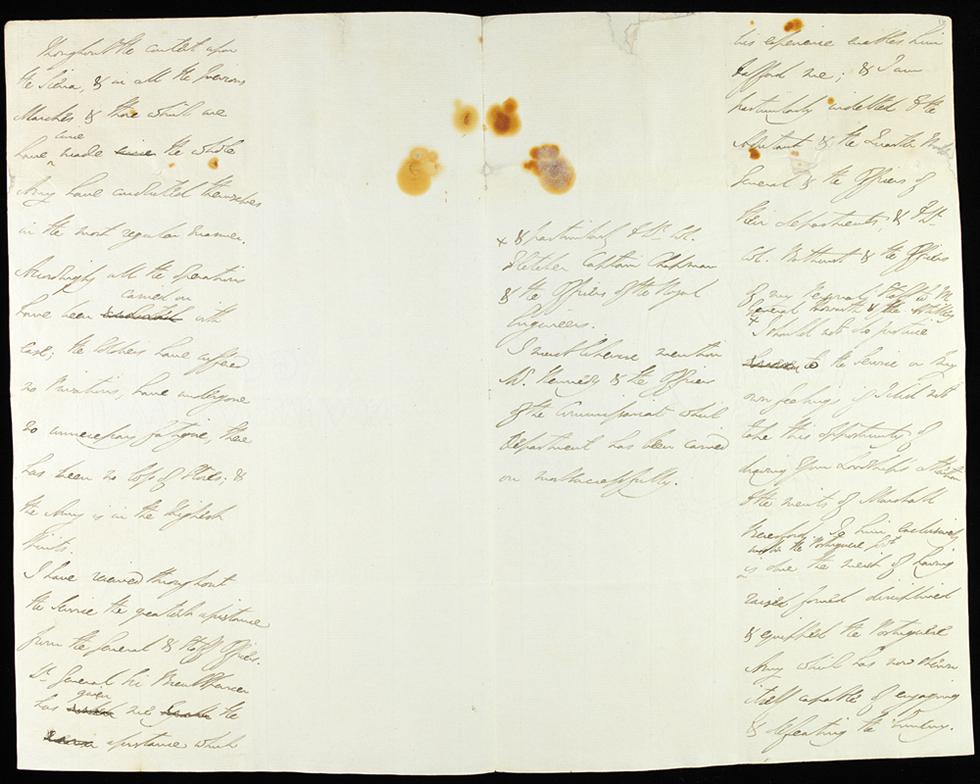 Throughout the contest upon
the Sierra, & in all the previous
Marches & those which we
have
made the whole
Army have conducted themselves
in the most regular manner.
Accordingly all the operations
carried on
have been with
ease; the Soldiers have suffered
no privations, have undergone
no unnecessary fatigue, there
has been no loss of Stores; &
the Army is in the highest
Spirits.
I have received throughout
the Service the greatest assistance
from the General & Staff Officers.
Lt. General Sir Brent Spencer
given
has me the
assistance which
his experience enables him
to afford me; & I am
particularly indebted to the
Adjutant & the Quarter Master
General & the Officers of
their departments; & to Lt.
Col. Bathurst & the Officers
of my Personal Staff to M
General Howorth & the Artillery
+ I should not do justice
to the Service or my
own feelings if I did not
take this opportunity of
drawing your Lordship's attention
to the merits of Marshall
Beresford. To him exclusively
under the Portuguese Govt
is due the merit of having
raised formed disciplined
& equipped the Portuguese
Army which has now shewn
itself capable of engaging
& defeating the Enemy.
+ & particularly to Lt. Col.
Fletcher Captain Chapman
& the Officers of the Royal
Engineers.
I must likewise mention
Mr. Kennedy & the Officers
of the Commissariat which
Department has been carried
on most successfully.